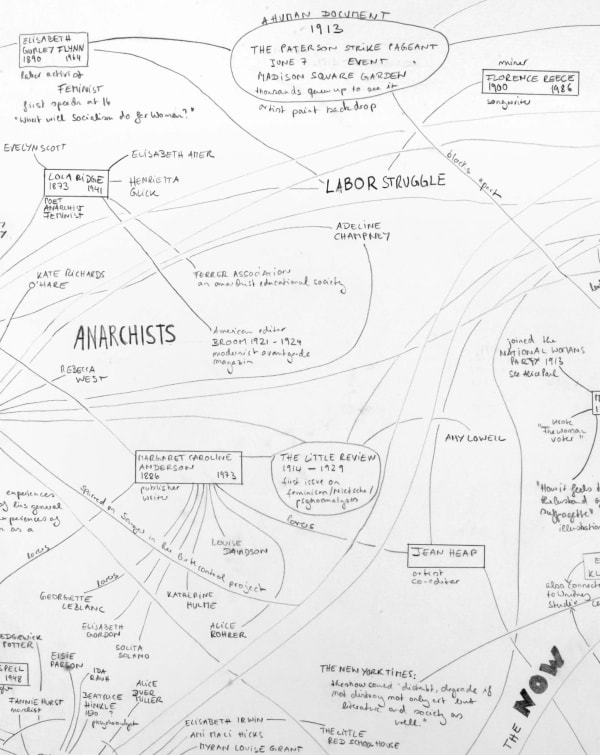 A HUMAN DOCUMENT
1913
THE PATERSON STRIKE PAGEANT
JUNE 7 EVENT
MADISON SQUARE GARDEN
thousands queu up to see it
artist paint backdrop
ELISABETH
GURLEY FLYNN
1890 1964
labor activist
FEMINIST
first speech at 16
"What will socialism do for Woman?"
miner
FLORENCE REECE
1900 1986
songwriter
EVELYN SCOTT
ELISABETH
LOLA RIDGE
1873 1941
HENRIETTA
GLICK
POET
ANARCHIST
FEMINIST
LABOR STRUGGLE
blocks apart
ADELINE
CHAMPNEY
KATE RICHARDS
O'HARE
FERRER ASSOCIATION
an anarchist educational society
ANARCHISTS
American editor
BROOM 1921 - 1924
modernist avantgarde
magazin
REBECCA
WEST
joined the
NATIONAL WOMANS
PARTY 1913
see Alice Paul
"The woman
voter"
"How it feels
suffragette"
MARGARET CAROLINE
ANDERSON
1886 1973
publisher
writer
THE LITTLE REVIEW
1914 - 1929
first issue on
feminism/Nietsche/
psychoanalysis
AMY LOWELL
experiences
of his general
experiences of
as a
Sanger in the Birth control project
lovers
JEAN HEAP
artist
co-editor
LOUISE
DAVIDSON
lovers
lovers
GEORGETTE
LEBLANC
KATHRINE
HULME
ELISABETH
GORDON
SOLITA
SOLANO
ALICE
ROHRER
also connected
to Whitney
Studio
SEDGEWICK
POTTER
ELSIE
PARSON
IDA
RAUH
SPELL
1948
FANNIE HURST
novelist
BEATRICE
HINKLE
psychoanalyst
ALICE
DUER
MILLER
THE NEW YORK TIMES:
the show could "disturb, degrade if
not destroy not only art but
literature and society as
well."
THE NOW
ELISABETH IRWIN
AMI MALI HICKS
MYRAN LOUISE GRANT
THE LITTLE
RED SCHOOLHOUSE